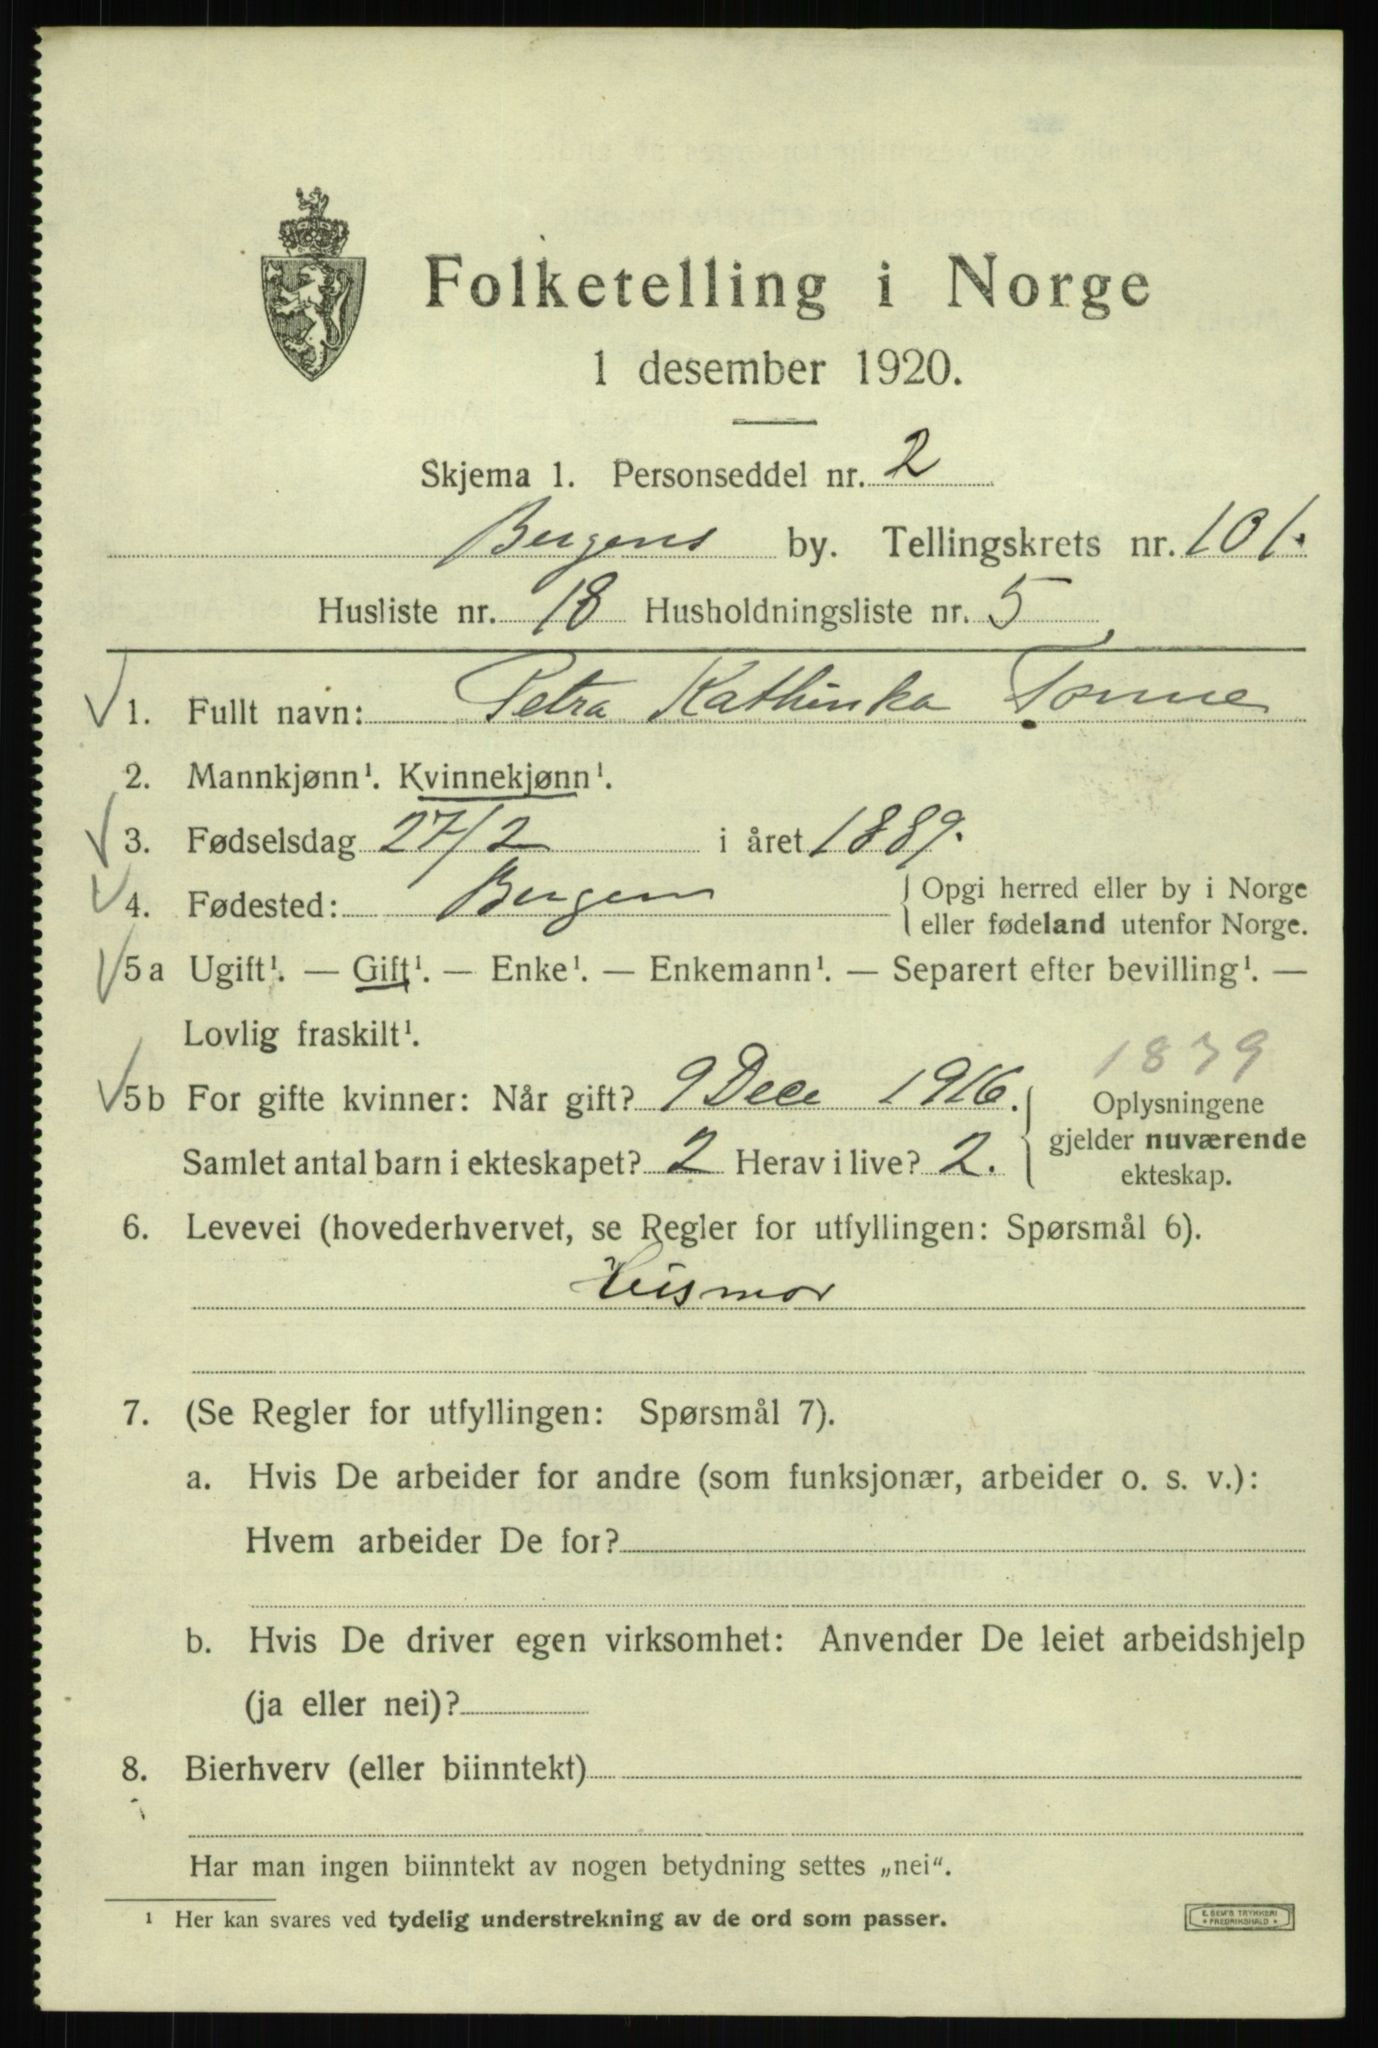 Folketelling i Norge
1 desember 1920.
Skjema 1. Personseddel nr. 2
Bergens by. Tellingskrets nr. 101.
Husliste nr. 18 Husholdningsliste nr. 5
1. Fullt navn: Petra Kathinka Tonne
2. Mannkjønn¹. Kvinnekjønn¹.
3. Fødselsdag 27/2 i året 1889.
4. Fødested: Bergen { Opgi herred eller by i Norge
eller fødeland utenfor Norge.
5a Ugift¹. — Gift¹. — Enke¹. — Enkemann¹. — Separert efter bevilling¹. —
Lovlig fraskilt¹.
1839
5b For gifte kvinner: Når gift? 9 Dece 1916. { Oplysningene
gjelder nuværende
ekteskap.
Samlet antal barn i ekteskapet? 2 Herav i live? 2.
6. Levevei (hovederhvervet, se Regler for utfyllingen: Spørsmål 6).
Husmor
7. (Se Regler for utfyllingen: Spørsmål 7).
a. Hvis De arbeider for andre (som funksjonær, arbeider o. s. v.):
Hvem arbeider De for?
b. Hvis De driver egen virksomhet: Anvender De leiet arbeidshjelp
(ja eller nei)?
8. Bierhverv (eller biinntekt)
Har man ingen biinntekt av nogen betydning settes „nei".
¹ Her kan svares ved tydelig understrekning av de ord som passer.
E. SEM'S TRYKKERI
• FREDRIKSHALD •